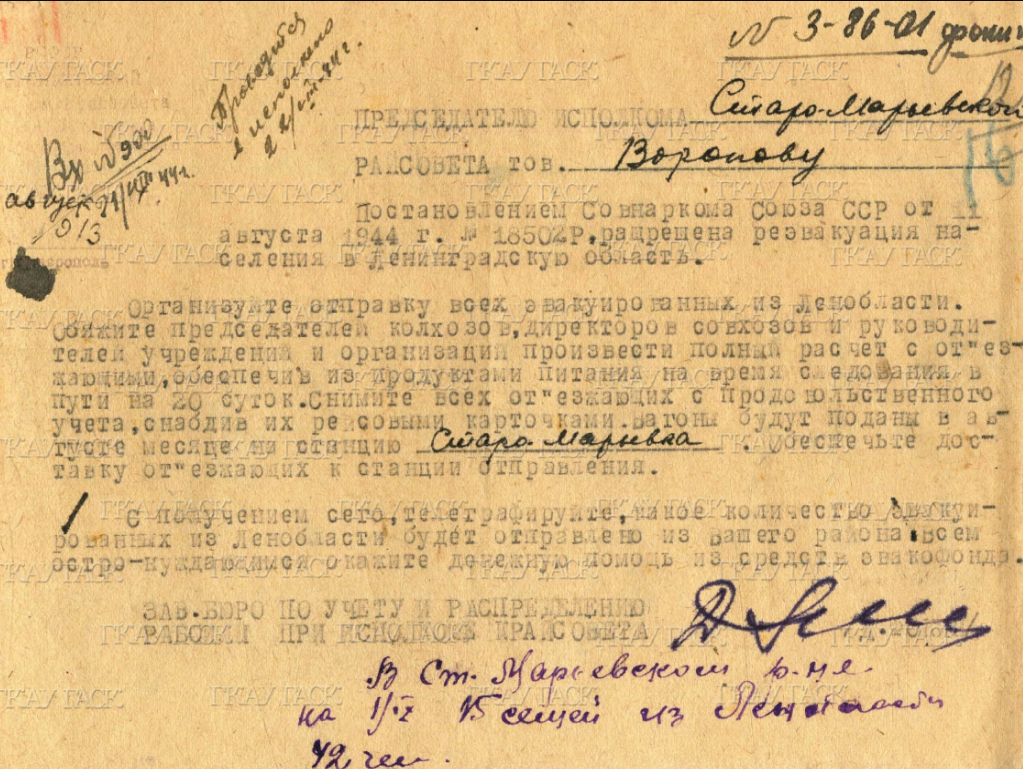 № 3-86-01
РСФСР
Проводится
исполкино
Вх № 900
август 21/VIII 44 г.
1913
ПРЕДСЕДАТЕЛЮ ИСПОЛКОМА Старо-Марьевской
РАЙСОВЕТА тов. Воропову
Постановлением Совнаркома Союза ССР от 11
августа 1944 г. № 18502Р, ращрешена реэвакуация на-
селения в Ленинградскую область.
Организуйте отправку всех эвакуированных из Ленобласти.
Обяжите председателей колхозов,директоров совхозов и руководи-
телей учреждений и организаций произвести полный расчет с от"ез-
жающими,обеспечив из продуктами питания на время следования в
пути на 20 суток.Снимите всех от"езжающих с продовольственного
учета,снабдив их рейсовыми карточками.Вагоны будут поданы в ав-
густе месяце на станцию Старо-Марьевка . Обеспечьте дос-
тавку от"езжающих к станции отправления.
С получением сего,телеграфируйте,какое количество эвакуи-
рованных из Ленобласти будет отправлено из Вашего района.Всем
остро-нуждающимся окажите денежную помощь из средств эвакофонда.
ЗАВ.БЮРО ПО УЧЕТУ И РАСПРЕДЕЛЕНИЮ
РАБСИЛЫ ПРИ ИСПОЛКОМЕ КРАЙСОВЕТА
В Ст. Марьевском р-не
на 1/IX 15 семей из Ленобласти
42 чел.
ГКАУ ГАСК